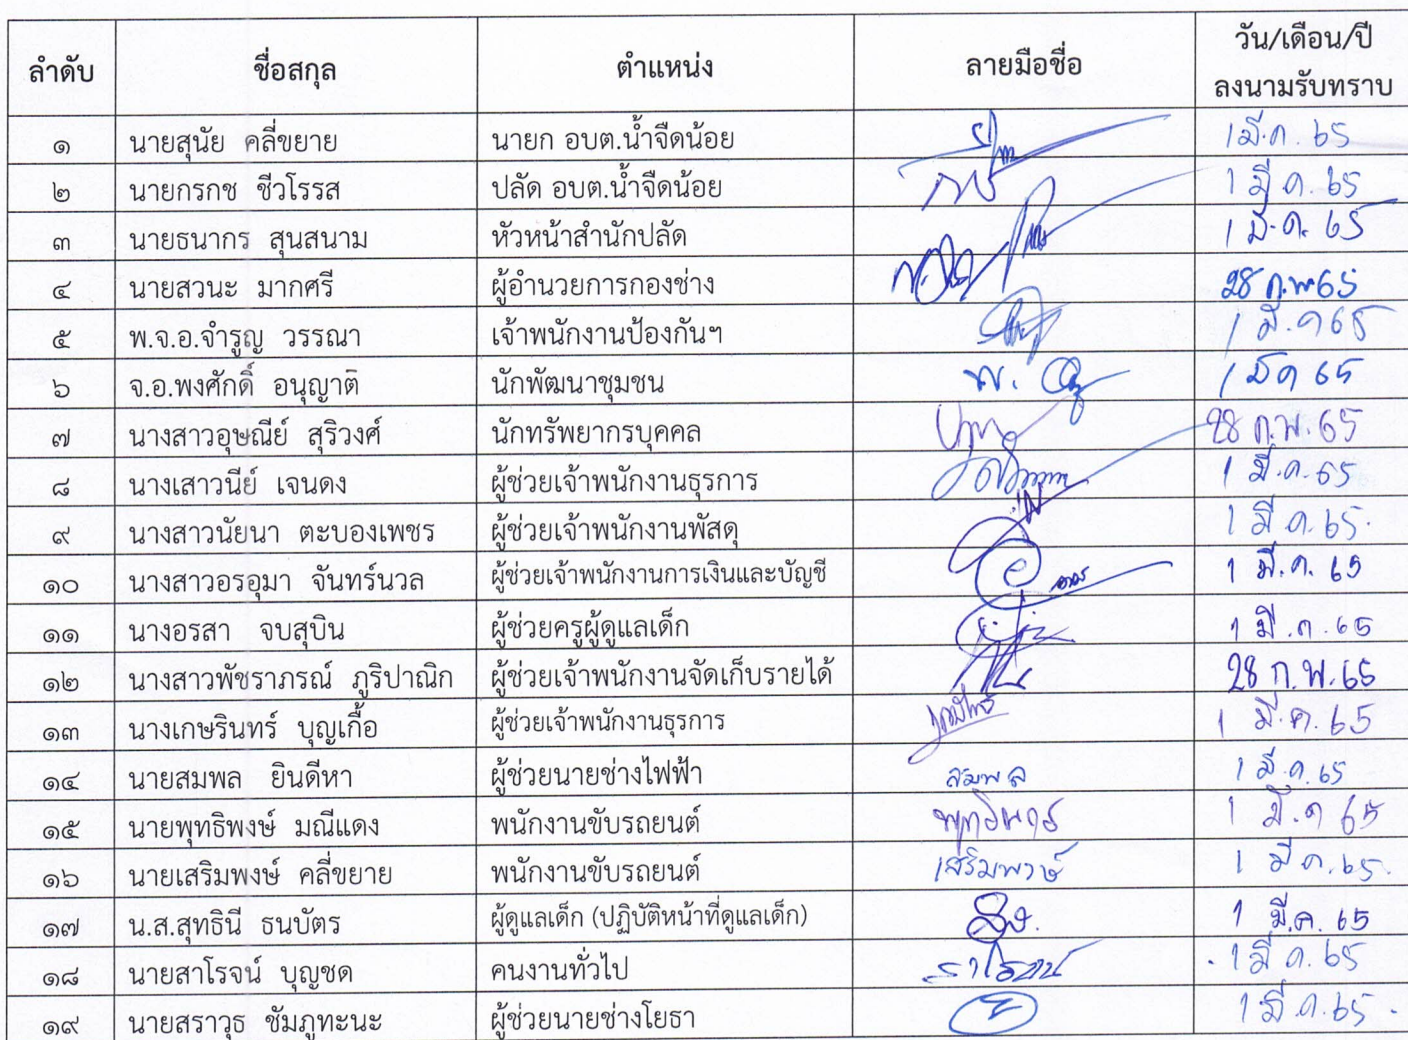 ลำดับ ชื่อสกุล ตำแหน่ง ลายมือชื่อ วัน/เดือน/ปี
ลงนามรับทราบ
๑ นายสุนัย คลี่ขยาย นายก อบต.น้ำจืดน้อย 1 มี.ค. 65
๒ นายกรกช ชีวโรรส ปลัด อบต.น้ำจืดน้อย 1 มี.ค. 65
๓ นายธนากร สุนสนาม หัวหน้าสำนักปลัด 1 มี.ค. 65
๔ นายสวนะ มากศรี ผู้อำนวยการกองช่าง 28 ก.พ 65
๕ พ.จ.อ.จำรูญ วรรณา เจ้าพนักงานป้องกันฯ 1 มี.ค 65
๖ จ.อ.พงศักดิ์ อนุญาติ นักพัฒนาชุมชน 1 มีค 65
๗ นางสาวอุษณีย์ สุริวงศ์ นักทรัพยากรบุคคล 28 ก.พ. 65
๘ นางเสาวนีย์ เจนดง ผู้ช่วยเจ้าพนักงานธุรการ 1 มี.ค.65
๙ นางสาวนัยนา ตะบองเพชร ผู้ช่วยเจ้าพนักงานพัสดุ 1 มี.ค. 65.
๑๐ นางสาวอรอุมา จันทร์นวล ผู้ช่วยเจ้าพนักงานการเงินและบัญชี 1 มี.ค. 65
๑๑ นางอรสา จบสุบิน ผู้ช่วยครูผู้ดูแลเด็ก 1 มี.ค. 65
๑๒ นางสาวพัชราภรณ์ ภูริปาณิก ผู้ช่วยเจ้าพนักงานจัดเก็บรายได้ 28 ก.พ.65
๑๓ นางเกษรินทร์ บุญเกื้อ ผู้ช่วยเจ้าพนักงานธุรการ 1 มี.ค. 65
๑๔ นายสมพล ยินดีหา ผู้ช่วยนายช่างไฟฟ้า สมพล 1 มี.ค. 65
๑๕ นายพุทธิพงษ์ มณีแดง พนักงานขับรถยนต์ 1 มี.ค 65
๑๖ นายเสริมพงษ์ คลี่ขยาย พนักงานขับรถยนต์ เสริมพงษ์ 1 มี.ค. 65.
๑๗ น.ส.สุทธินี ธนบัตร ผู้ดูแลเด็ก (ปฏิบัติหน้าที่ดูแลเด็ก) 1 มี.ค. 65
๑๘ นายสาโรจน์ บุญชด คนงานทั่วไป 1 มี.ค. 65
๑๙ นายสราวุธ ชัมภูทะนะ ผู้ช่วยนายช่างโยธา 1 มี.ค.65.